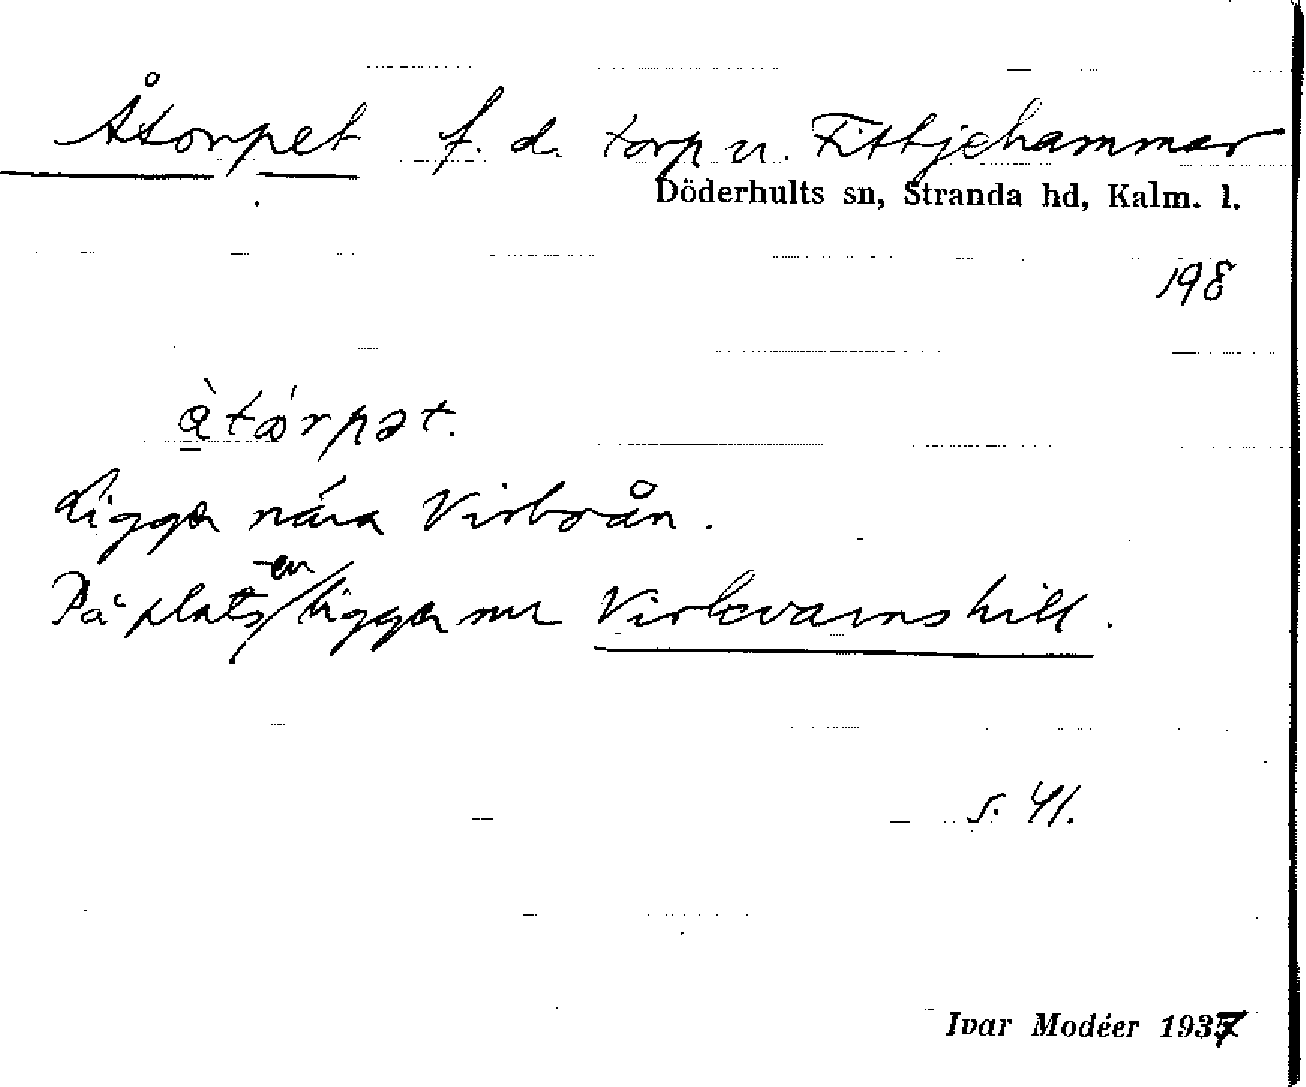 Åtorpet f. d. torp u. Fittjehammar
Döderhults sn, Stranda hd, Kalm. l.
198
å̀tórpət.
Ligger nära Virboån.
På platsen ligger nu Virkvarnshill.
s. 41.
Ivar Modéer 1937